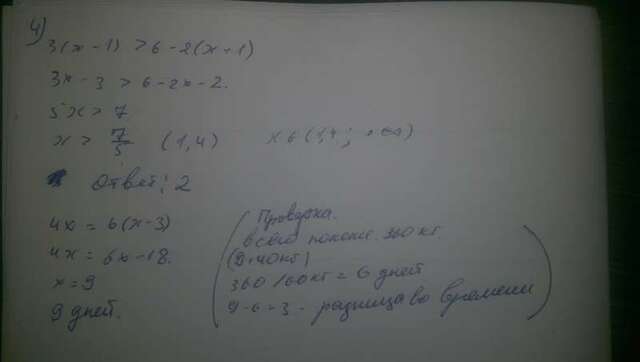 4)
3(x-1) > 6-2(x+1)
3x-3 > 6-2x-2.
5x > 7
x > 7/5 (1,4) x ∈ (1,4; +∞)
Ответ: 2
4x = 6(x-3)
4x = 6x-18.
x = 9
9 дней.
Проверка.
всего 360 кг.
(9·40кг)
360/60кг = 6 дней
9-6=3 - разница во времени